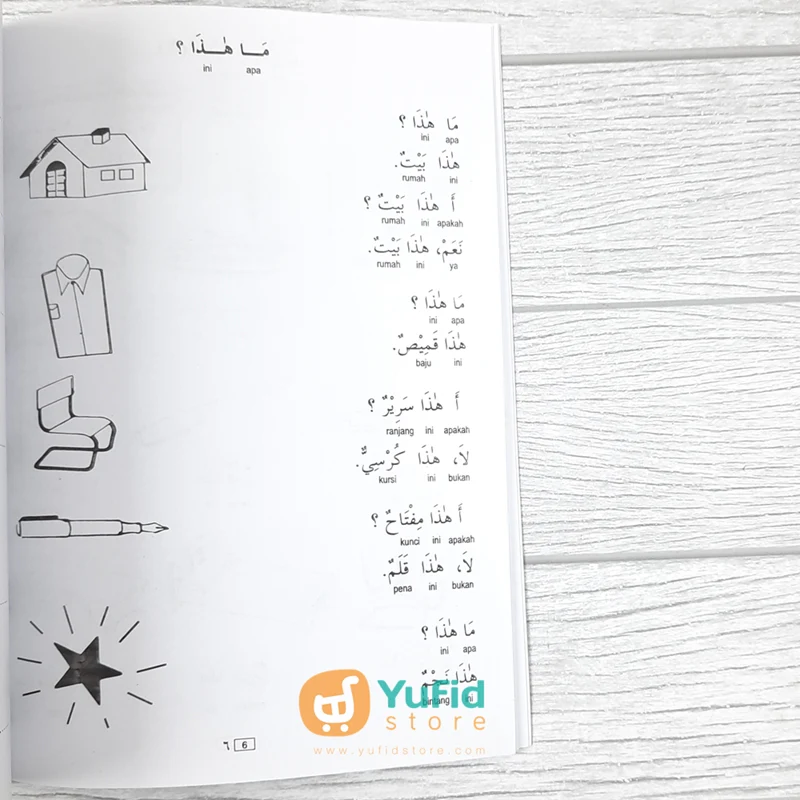 مَـــا هٰـــذَا ؟
ini apa
مَا هٰذَا ؟
ini apa
هٰذَا بَيْتٌ.
rumah ini
أَ هٰذَا بَيْتٌ ؟
rumah ini apakah
نَعَمْ، هٰذَا بَيْتٌ.
rumah ini ya
مَا هٰذَا ؟
ini apa
هٰذَا قَمِيْصٌ.
baju ini
أَ هٰذَا سَرِيْرٌ ؟
ranjang ini apakah
لَا، هٰذَا كُرْسِيٌّ.
kursi ini bukan
أَ هٰذَا مِفْتَاحٌ ؟
kunci ini apakah
لَا، هٰذَا قَلَمٌ.
pena ini bukan
مَا هٰذَا ؟
ini apa
هٰذَا نَجْمٌ
bintang ini
YuFid
store
www.yufidstore.com
٦ 6